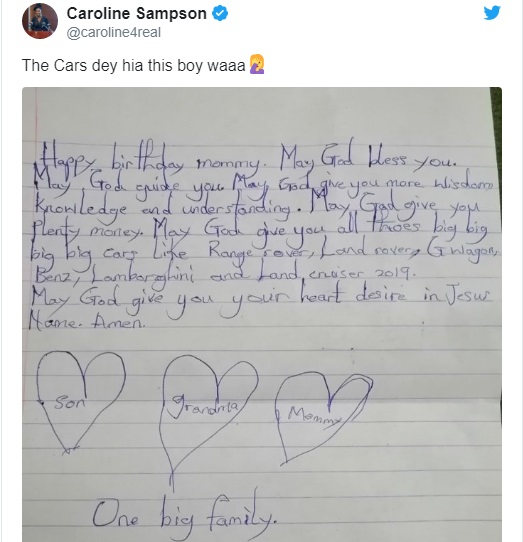 Caroline Sampson
@caroline4real
The Cars dey hia this boy waaa
Happy birthday mommy. May God bless you.
May God guide you. May God give you more wisdom
knowledge and understanding. May God give you
plenty money. May God give you all thoes big big
big big cars like Range rover, Land rover, G wagon,
Benz, Lamborghini and Land cruiser 2019.
May God give you your heart desire in Jesus
Name. Amen.
Son Grandma Mommy
One big family.